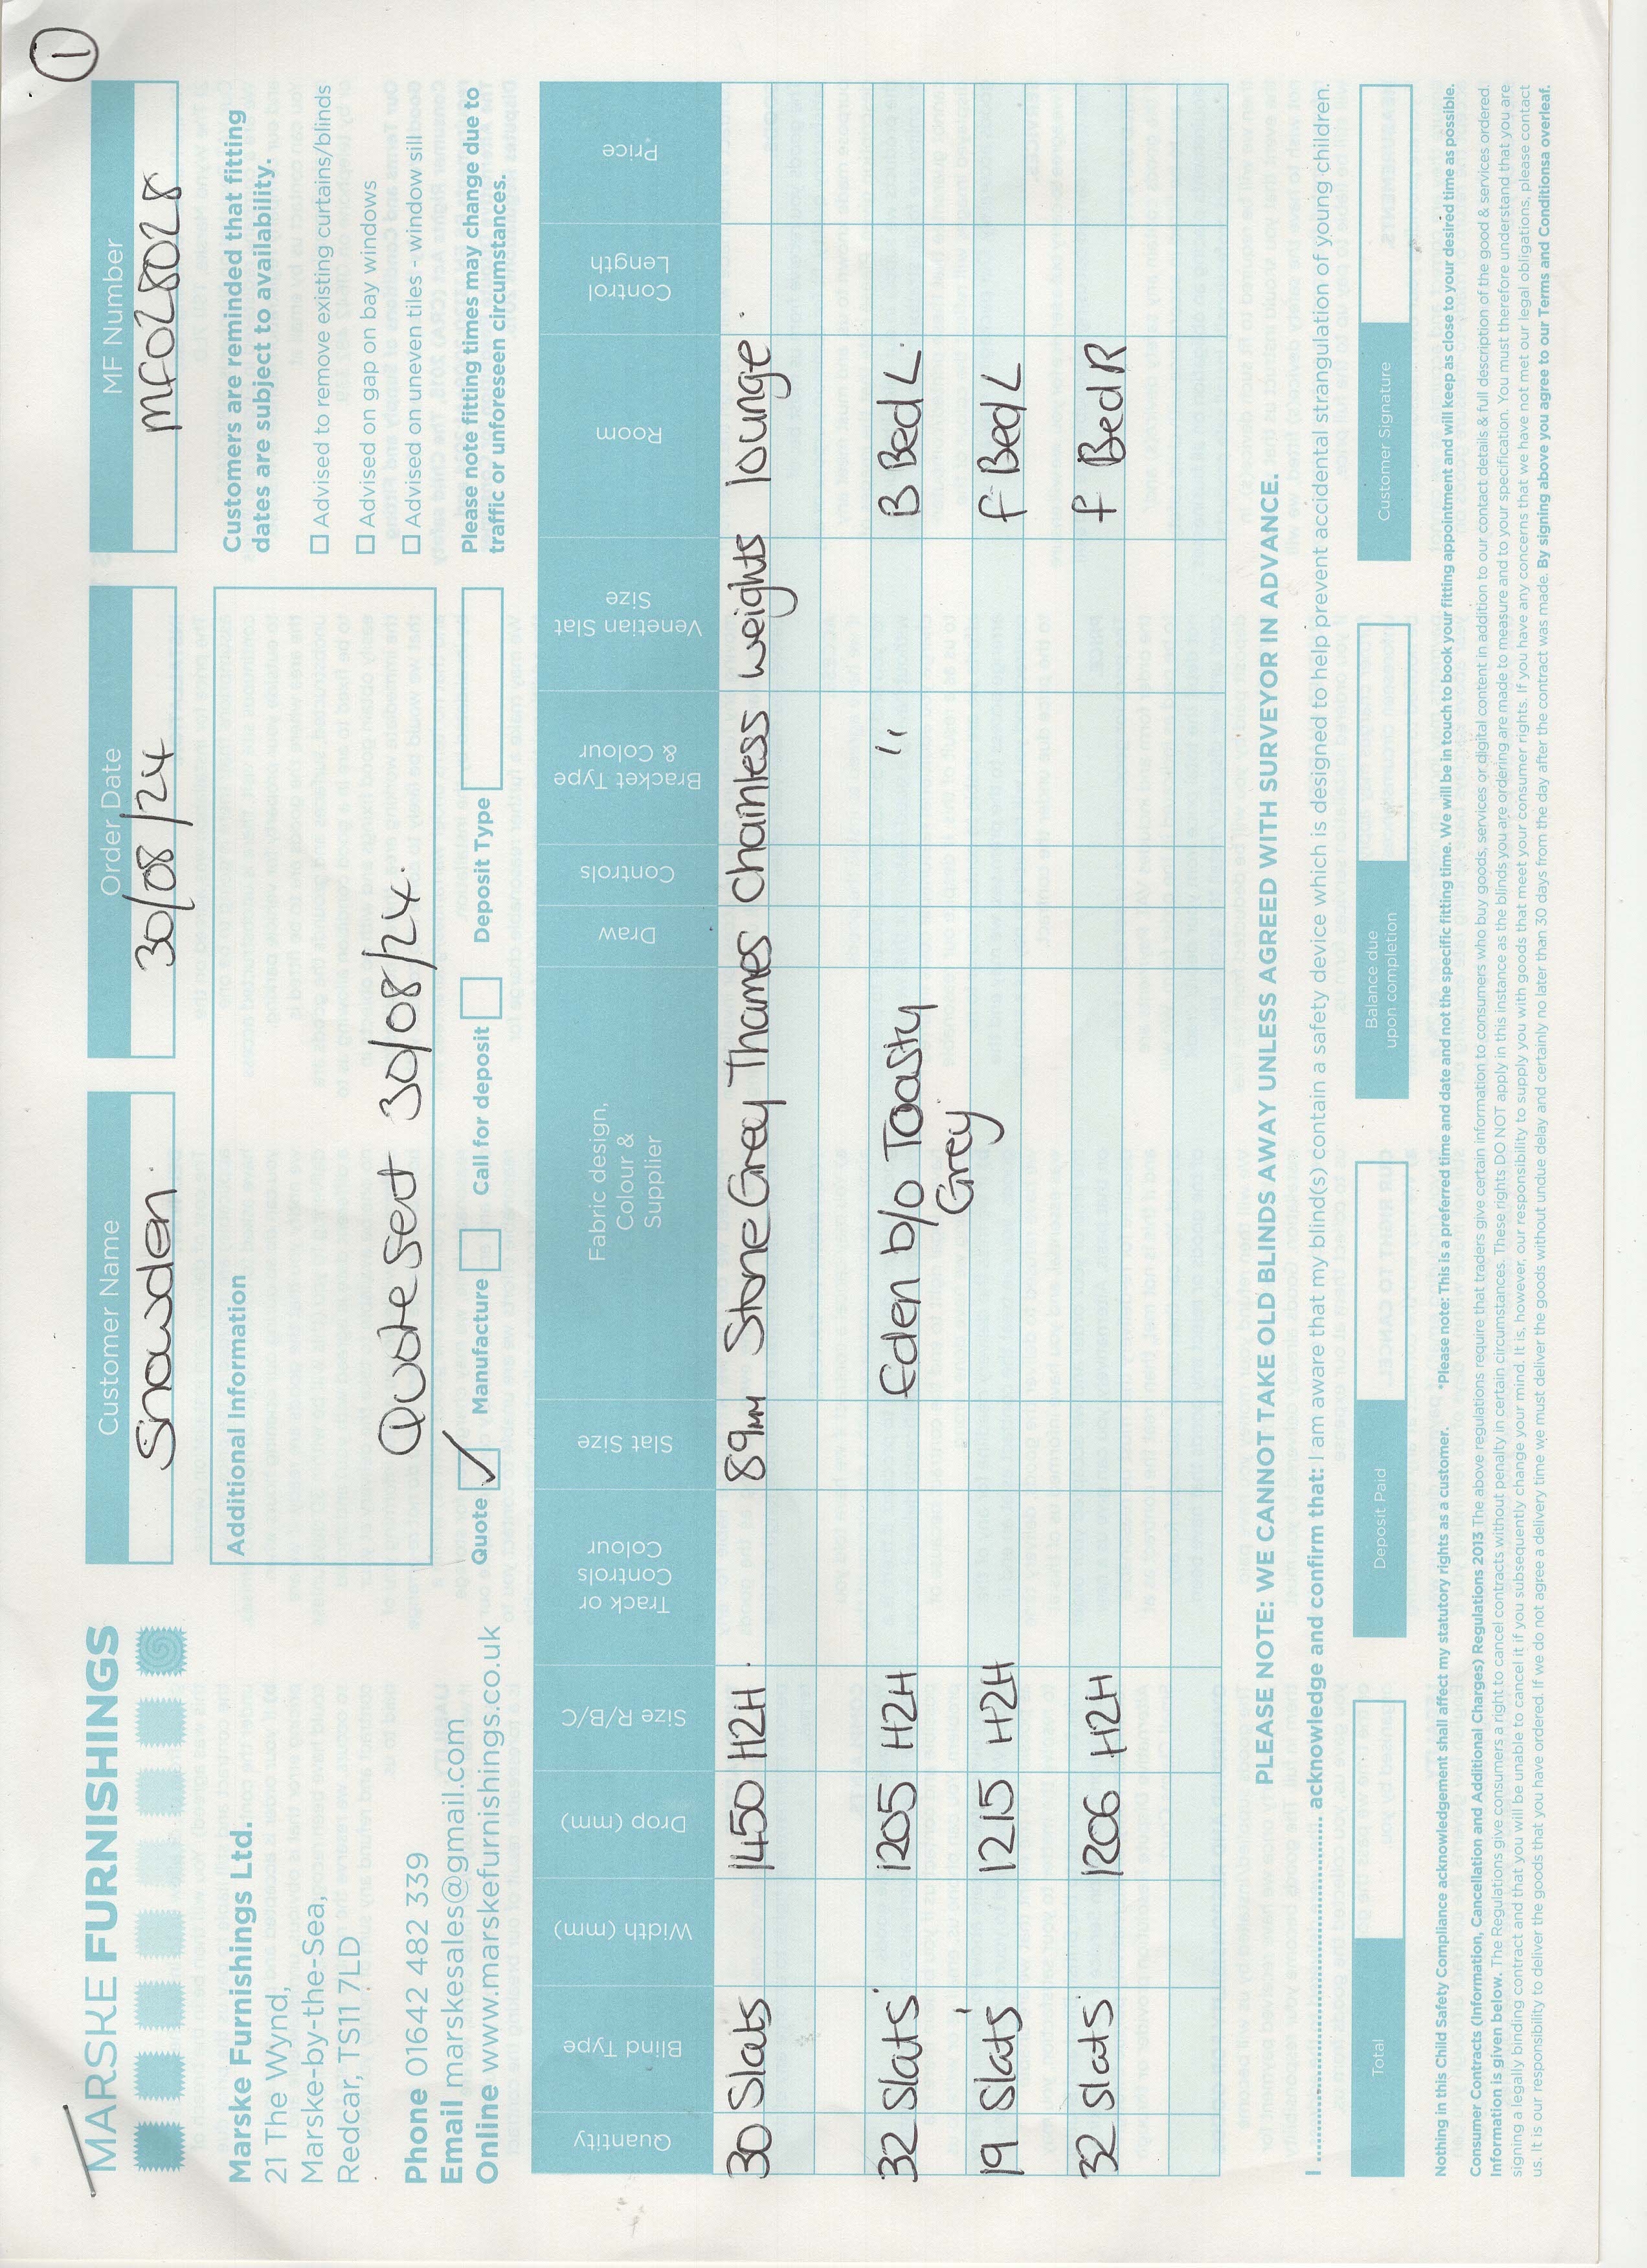 1
MARSKE FURNISHINGS
Marske Furnishings Ltd.
21 The Wynd,
Marske-by-the-Sea,
Redcar, TS11 7LD
Phone 01642 482 339
Email marskesales@gmail.com
Online www.marskefurnishings.co.uk
Customer Name
Snowden.
Order Date
30/08/24
MF Number
MF028028
Additional Information
Quote sent 30/08/24.
Quote ✓ Manufacture Call for deposit Deposit Type
Customers are reminded that fitting
dates are subject to availability.
Advised to remove existing curtains/blinds
Advised on gap on bay windows
Advised on uneven tiles - window sill
Please note fitting times may change due to
traffic or unforeseen circumstances.
Quantity Blind Type Width (mm) Drop (mm) Size R/B/C Track or Controls Colour Slat Size Fabric design, Colour & Supplier Draw Controls Bracket Type & Colour Venetian Slat Size Room Control Length Price
30 Slats 1450 H2H. 89mm Stone Grey Thames Chainless weights lounge.
32 Slats 1205 H2H Eden b/o Toasty " B Bed L.
Grey
19 Slats 1215 H2H F Bed L
32 Slats 1206 H2H F Bed R
PLEASE NOTE: WE CANNOT TAKE OLD BLINDS AWAY UNLESS AGREED WITH SURVEYOR IN ADVANCE.
I ........................ acknowledge and confirm that: I am aware that my blind(s) contain a safety device which is designed to help prevent accidental strangulation of young children.
Total Deposit Paid Balance due upon completion Customer Signature
Nothing in this Child Safety Compliance acknowledgement shall affect my statutory rights as a customer. *Please note: This is a preferred time and date and not the specific fitting time. We will be in touch to book your fitting appointment and will keep as close to your desired time as possible.
Consumer Contracts (Information, Cancellation and Additional Charges) Regulations 2013 The above regulations require that traders give certain information to consumers who buy goods, services or digital content in addition to our contact details & full description of the good & services ordered.
Information is given below. The Regulations give consumers a right to cancel contracts without penalty in certain circumstances. These rights DO NOT apply in this instance as the blinds you are ordering are made to measure and to your specification. You must therefore understand that you are
signing a legally binding contract and that you will be unable to cancel it if you subsequently change your mind. It is, however, our responsibility to supply you with goods that meet your consumer rights. If you have any concerns that we have not met our legal obligations, please contact
us. It is our responsibility to deliver the goods that you have ordered. If we do not agree a delivery time we must deliver the goods without undue delay and certainly no later than 30 days from the day after the contract was made. By signing above you agree to our Terms and Conditionsa overleaf.